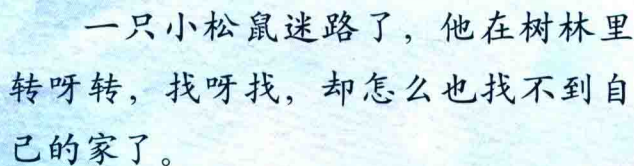 一只小松鼠迷路了，他在树林里
转呀转，找呀找，却怎么也找不到自
己的家了。